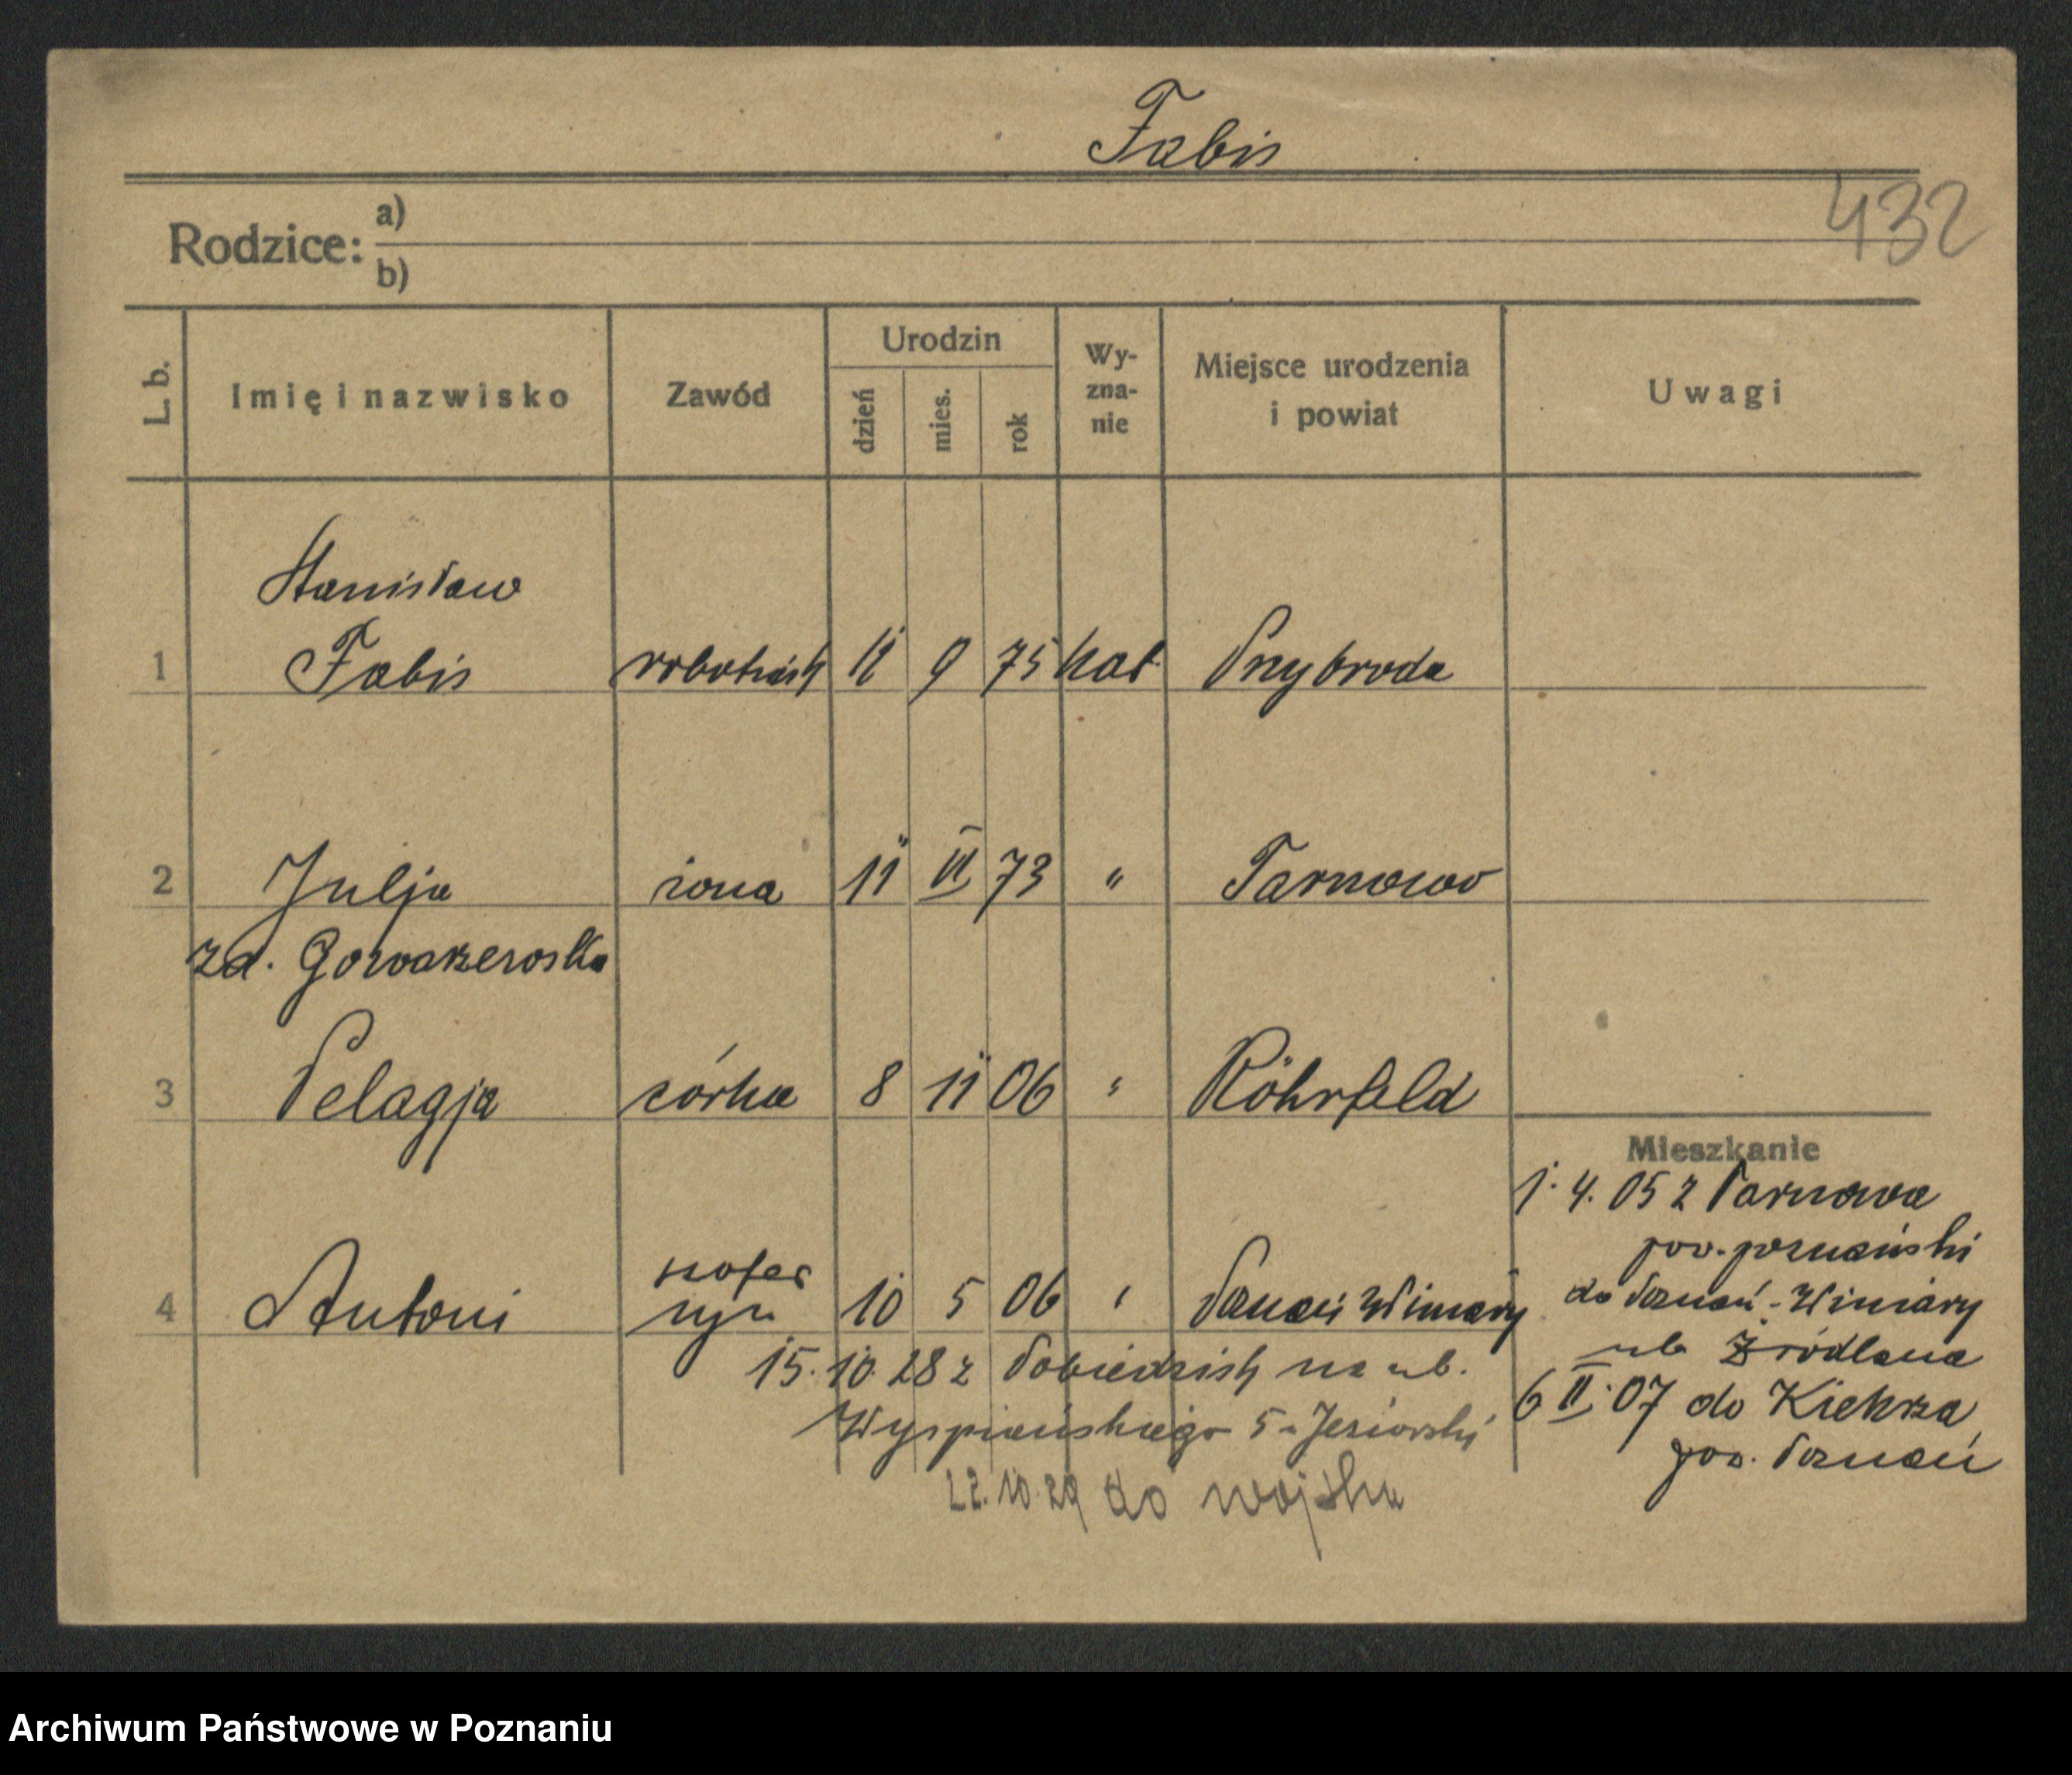 Fabis
432
Rodzice: a)
b)
L. b. Imię i nazwisko Zawód Urodzin dzień mies. rok Wy-zna-nie Miejsce urodzenia i powiat Uwagi
Stanisław
1 Fabis robotnik 11 9 75 kat. Przybroda
2 Julja żona 11 II 73 " Tarnowo
zd.
3 Pelagja córka 8 11 06 " Röhrfeld
Mieszkanie
1. 4. 05 z Tarnowa
pow. poznański
szofer
4 Antoni syn 10 5 06 " Poznań Winiary
do Poznań-Winiary
ul. Źródlana
15. 10. 28 z Pobiedzisk na ul.
6 II 07 do Kiekrza,
Wyspiańskiego 5 u Jeziorski
pow. Poznań
22. 10. 29 do wojska
Archiwum Państwowe w Poznaniu